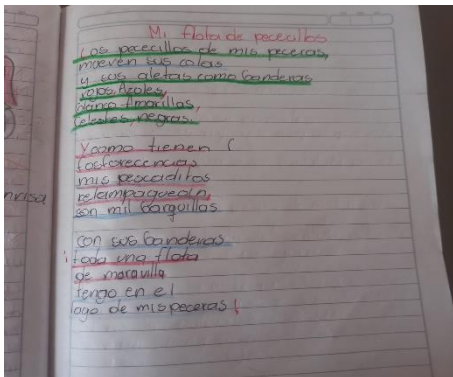 Mi flota de pececillos
Los pececillos de mis peceras,
mueven sus colas
y sus aletas como banderas
rojas, Azoles,
blanco Amarillas,
celestes, negras.
Y como tienen
fosforecencias
mis pescaditos
relampaguean,
son mil barquillas
con sus banderas
¡toda una flota
de maravilla
tengo en el
lago de mis peceras!
nrisa